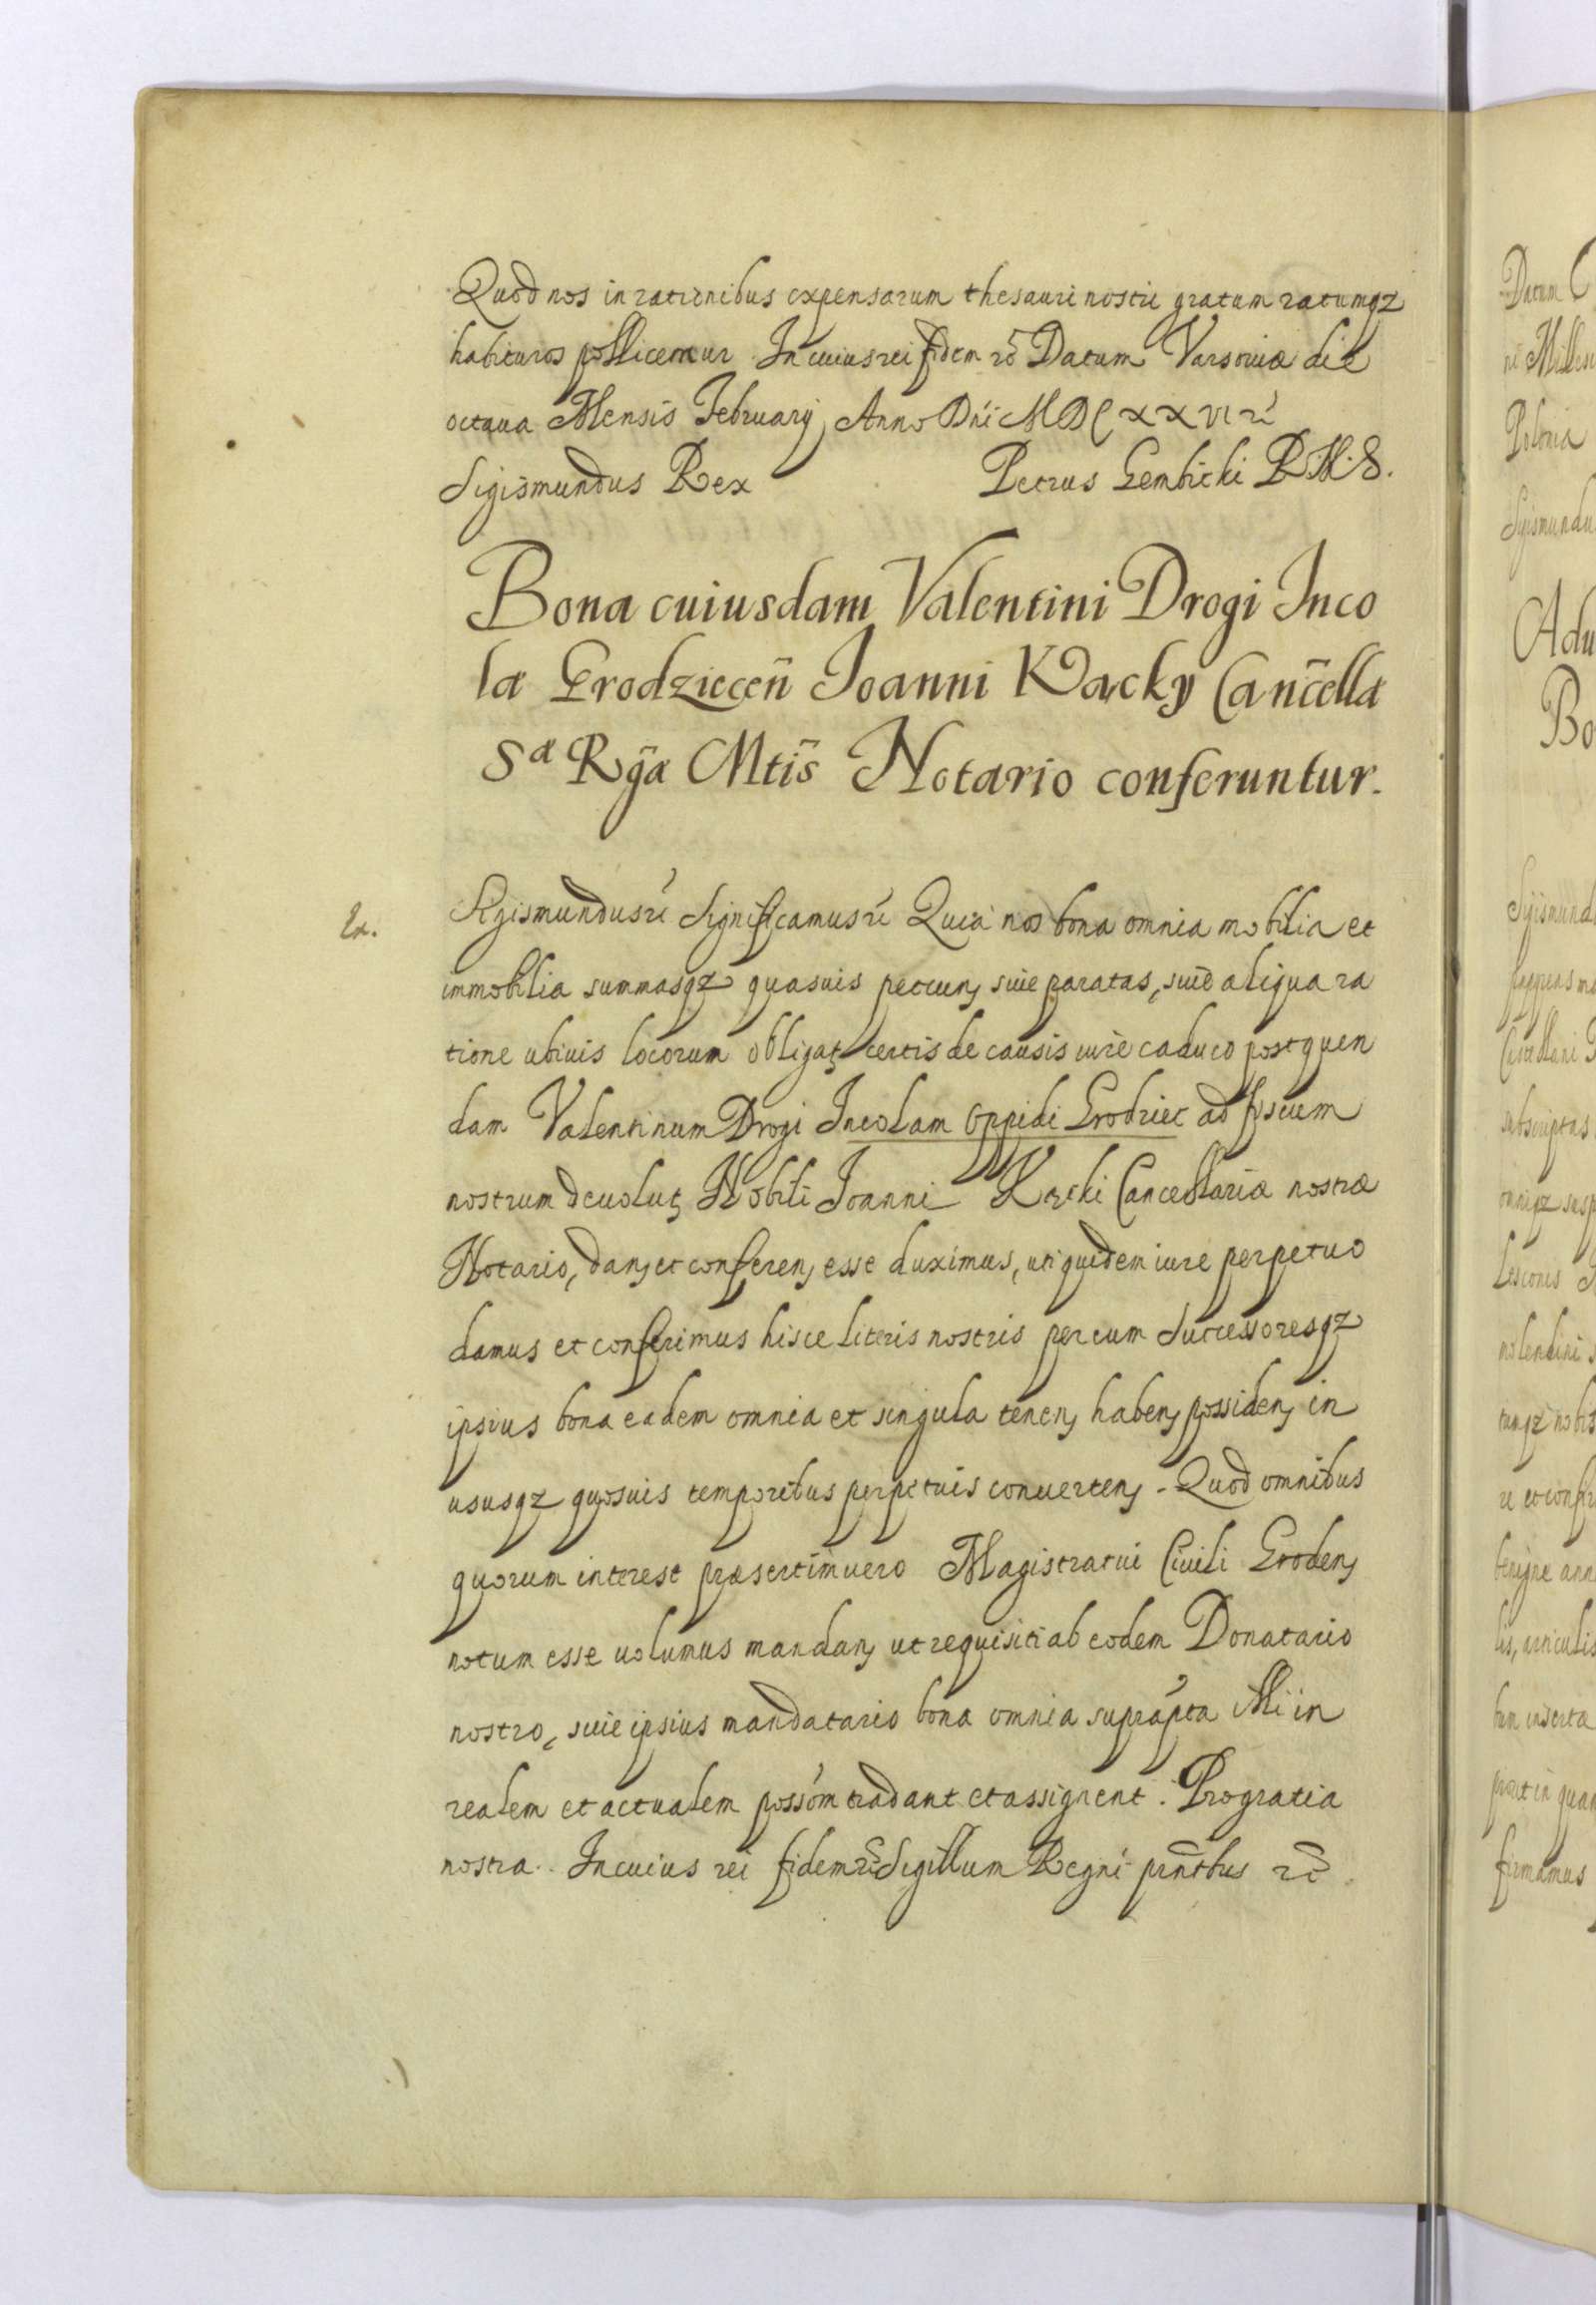 Quod nos in rationibus expensarum thesauri nostri gratum ratumqz
habituros pollicemur. In cuius rei fidem rc̄ Datum Varsoviæ die
octaua Mensis February Anno Dńi MDCXXVI rć
Sigismundus Rex Petrus Gembicki R.M.S.
Bona cuiusdam Valentini Drogi Inco
læ Grodziecen̄ Joanni Kącky Canc̄ellæ
Sæ Rg̃æ Mtis̃ Notario conferuntur.
Ex. Sigismundus rć Significamus rć Quia nos bona omnia mobilia et
immobilia summasqz quasuis pecun, siue paratas, siue aliqua ra
tione ubiuis locorum obligat, certis de causis iure caduco post quen
dam Valentinum Drogi Incolam Oppidi Grodziec ad fiscum
nostrum deuolut, Nobili Joanni Kącki Cancellariæ nostræ
Notario, dan, et conferen, esse duximus, uti quidem iure perpetuo
damus et conferimus hisce literis nostris per eum Successoresqz
ipsius bona eadem omnia et singula tenen, haben, possiden, in
ususqz quosuis temporibus perpetuis conuerten,. Quod omnibus
quorum interest præsertim uero Magistratui Ciuili Groden,
notum esse uolumus mandan, ut requisiti ab eodem Donatario
nostro, siue ipsius mandatario bona omnia supráp̃ta illi in
realem et actualem possóm tradant et assignent. Pro gratia
nostra. In cuius rei fidem rc̄ Sigillum Regni prñtbus rc̄
Datum
ni Millesi
Polonia
Sigismundu
Adu
Bo
Sigismund
subscriptas
Lesconis
molendini s
benigne ann
lis, articulis
tum inserta
firmamus